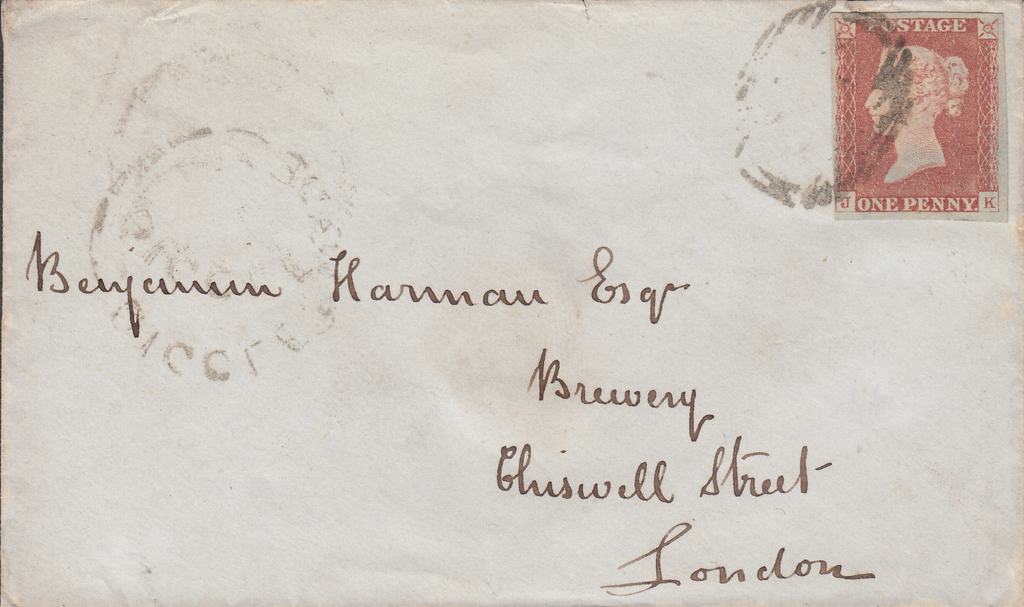 POSTAGE
J ONE PENNY. K
Benjamin Harman Esqr
Brewery
Chiswell Street
London